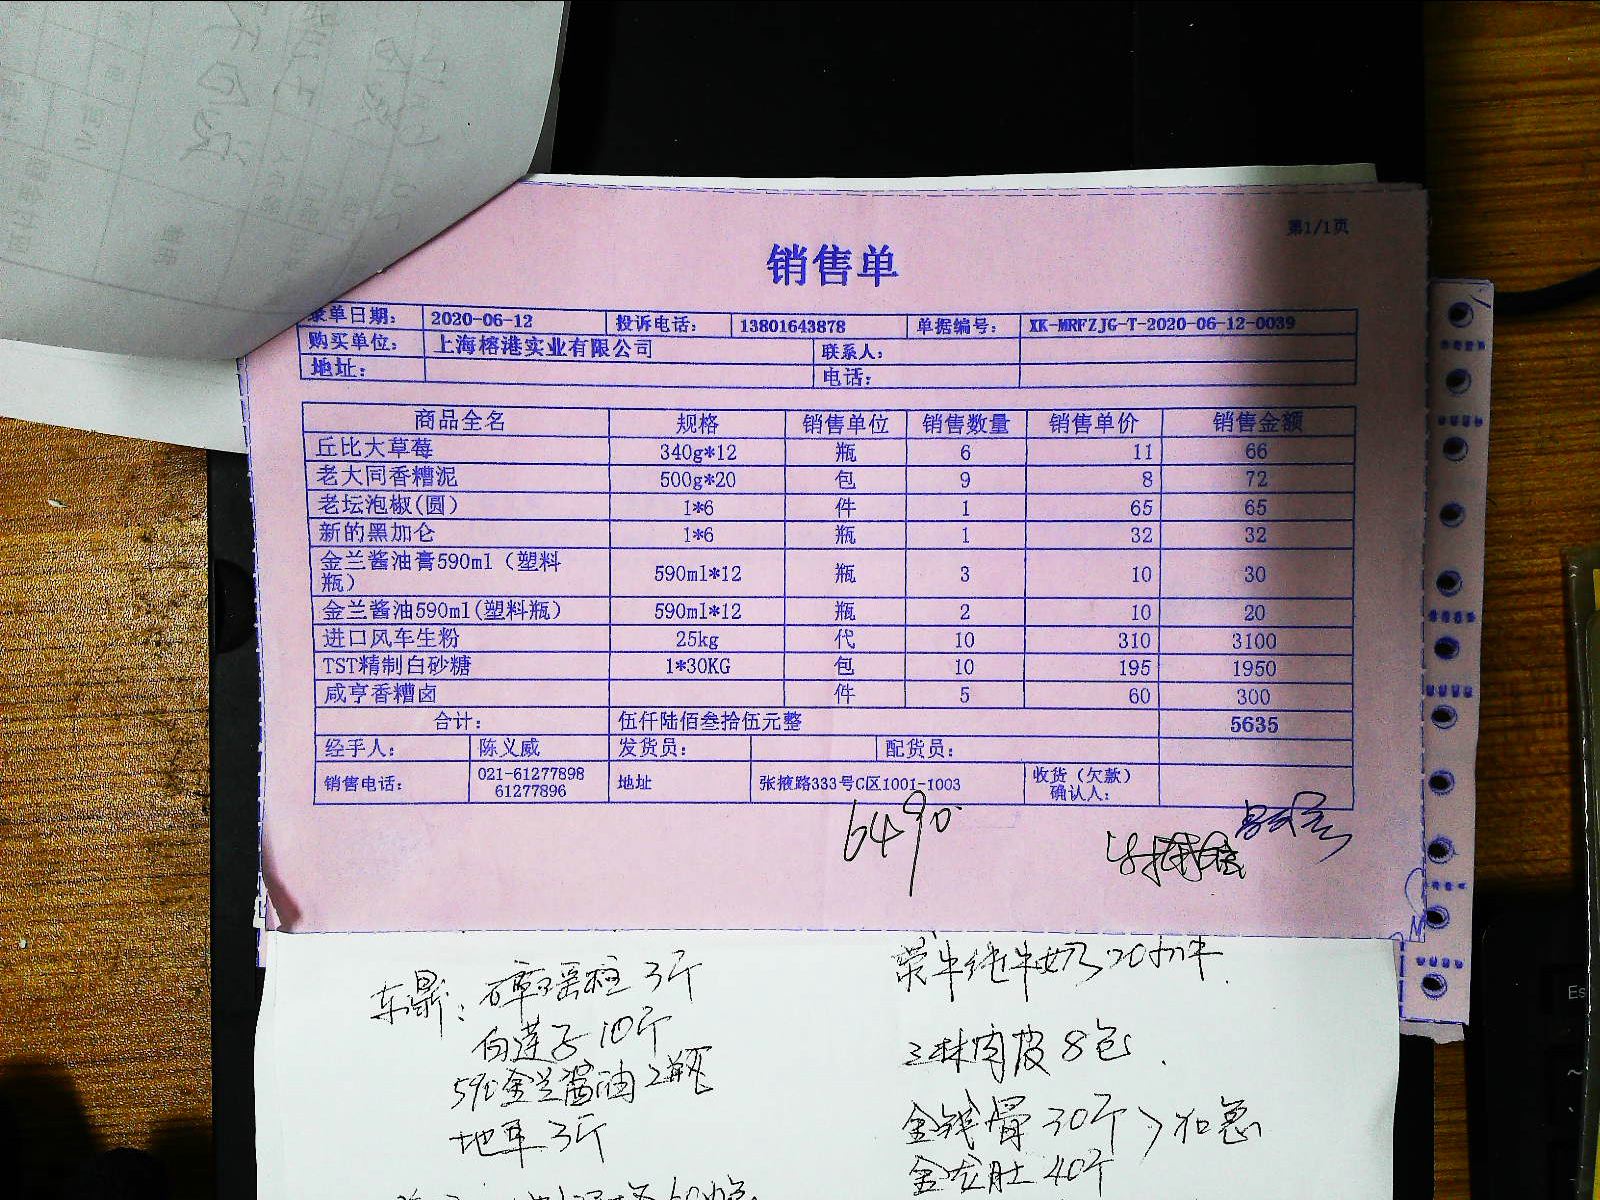 第1/1页
销售单
录单日期： 2020-06-12 投诉电话： 13801643878 单据编号： XK-MRFZJG-T-2020-06-12-0039
购买单位： 上海榕港实业有限公司 联系人：
地址： 电话：
商品全名 规格 销售单位 销售数量 销售单价 销售金额
丘比大草莓 340g*12 瓶 6 11 66
老大同香糟泥 500g*20 包 9 8 72
老坛泡椒(圆) 1*6 件 1 65 65
新的黑加仑 1*6 瓶 1 32 32
金兰酱油膏590ml（塑料
瓶） 590ml*12 瓶 3 10 30
金兰酱油590ml(塑料瓶) 590ml*12 瓶 2 10 20
进口风车生粉 25kg 代 10 310 3100
TST精制白砂糖 1*30KG 包 10 195 1950
咸亨香糟卤 件 5 60 300
合计： 伍仟陆佰叁拾伍元整 5635
经手人： 陈义威 发货员： 配货员：
销售电话： 021-61277898
61277896 地址 张掖路333号C区1001-1003 收货（欠款）
确认人：
6490
东鼎： 瑶柱 3斤
白莲子 10斤
金兰酱油 2瓶
地耳 3斤
纯牛奶 20
三林肉皮 8包
金钱骨 30斤 加急
金龙肚 40斤
Es